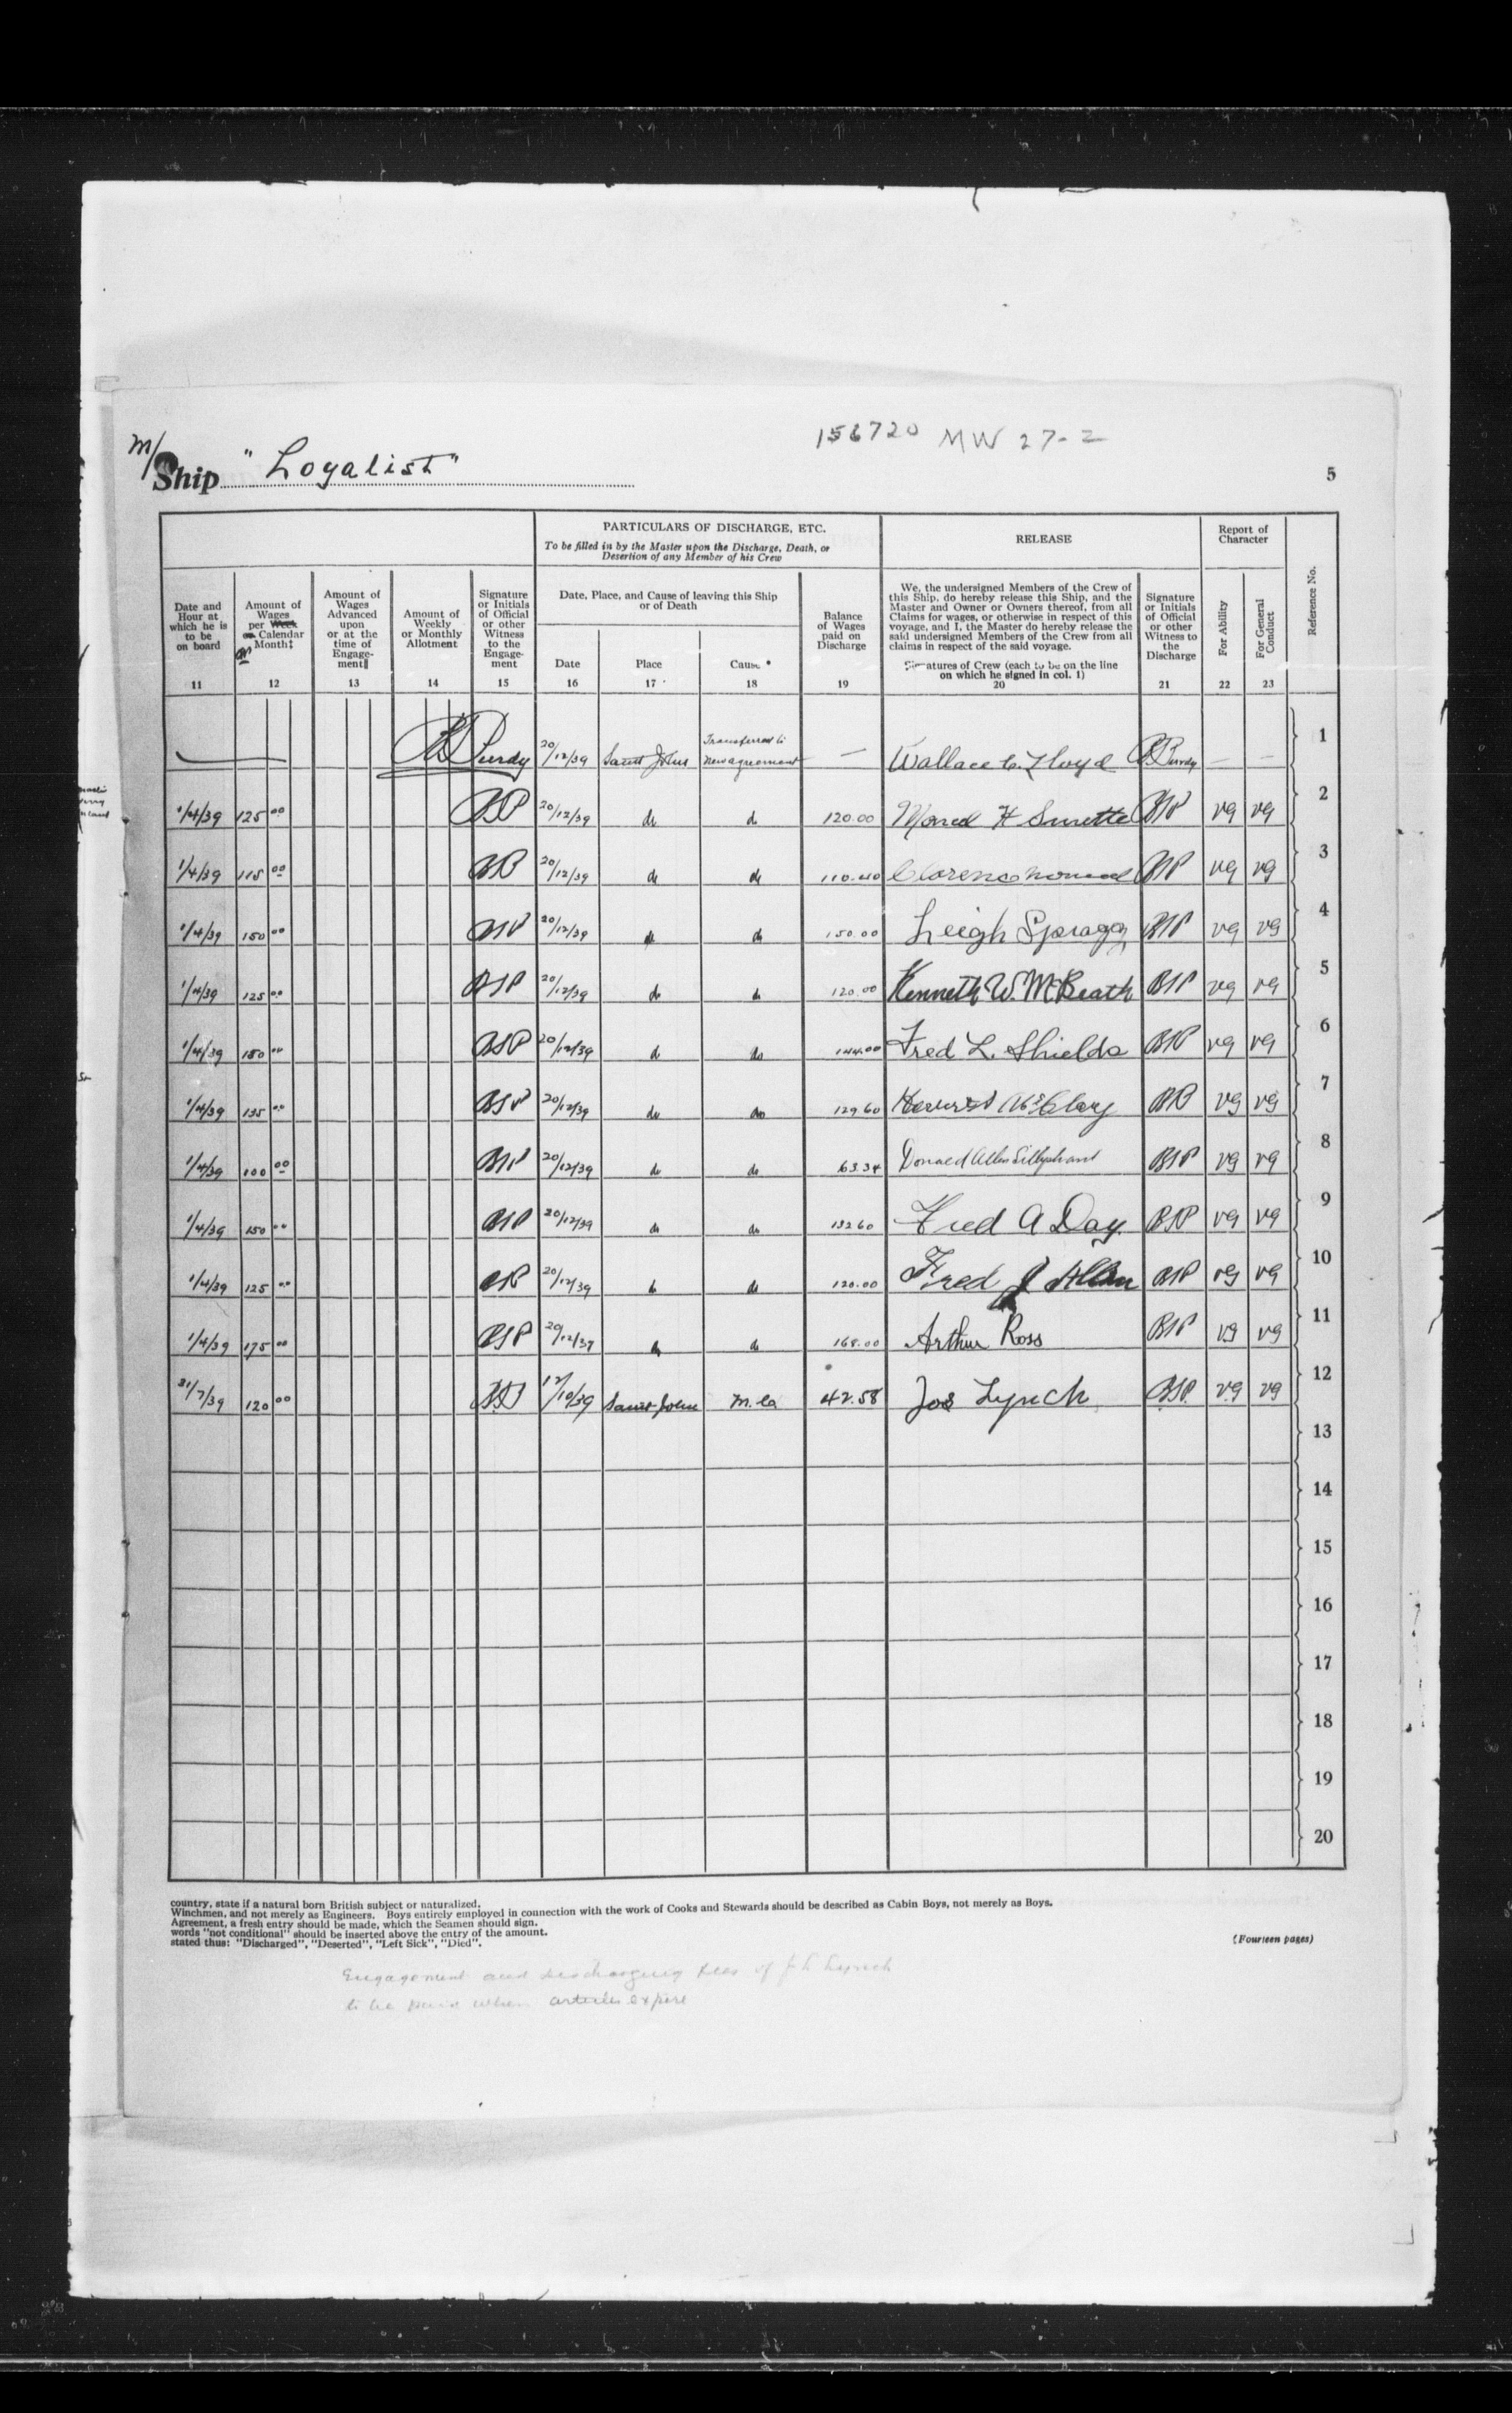 156720 MW 27-2
M/Ship "Loyalist"
5
PARTICULARS OF DISCHARGE, ETC.
To be filled in by the Master upon the Discharge, Death, or
Desertion of any Member of his Crew
RELEASE
Report of
Character
Date and
Hour at
which he is
to be
on board
11
Amount of
Wages
per Week
or Calendar
Month‡
12
Amount of
Wages
Advanced
upon
or at the
time of
Engage-
ment‖
13
Amount of
Weekly
or Monthly
Allotment
14
Signature
or Initials
of Official
or other
Witness
to the
Engage-
ment
15
Date, Place, and Cause of leaving this Ship
or of Death
Date
16
Place
17
Cause *
18
Balance
of Wages
paid on
Discharge
19
We, the undersigned Members of the Crew of
this Ship, do hereby release this Ship, and the
Master and Owner or Owners thereof, from all
Claims for wages, or otherwise in respect of this
voyage, and I, the Master do hereby release the
said undersigned Members of the Crew from all
claims in respect of the said voyage.
Signatures of Crew (each to be on the line
on which he signed in col. 1)
20
Signature
or Initials
of Official
or other
Witness to
the
Discharge
21
For Ability
22
For General
Conduct
23
Reference No.
Purdy 20/12/39 Saint John Transferred to new agreement — Wallace C. Lloyd Purdy — — 1
1/4/39 125 00 BSP 20/12/39 do do 120.00 H Surette BSP VG VG 2
1/4/39 115 00 BSP 20/12/39 do do 110.40 Clarence BSP VG VG 3
1/4/39 150 00 BSP 20/12/39 do do 150.00 Leigh Spragg BSP VG VG 4
1/4/39 125 00 BSP 20/12/39 do do 120.00 Kenneth W. McBeath BSP VG VG 5
1/4/39 150 00 BSP 20/12/39 do do 144.00 Fred L. Shields BSP VG VG 6
1/4/39 135 00 BSP 20/12/39 do do 129 60 BSP VG VG 7
1/4/39 100 00 BSP 20/12/39 do do 63.34 Donald Allen Sillyphant BSP VG VG 8
1/4/39 150 00 BSP 20/12/39 do do 132 60 Fred A Day BSP VG VG 9
1/4/39 125 00 BSP 20/12/39 do do 120.00 Fred J Allen BSP VG VG 10
1/4/39 175 00 BSP 20/12/39 do do 168.00 Arthur Ross BSP VG VG 11
31/7/39 120 00 BSP 12/10/39 Saint John M.C. 42.58 Jos Lynch BSP. VG VG 12
13
14
15
16
17
18
19
20
country, state if a natural born British subject or naturalized.
Winchmen, and not merely as Engineers. Boys entirely employed in connection with the work of Cooks and Stewards should be described as Cabin Boys, not merely as Boys.
Agreement, a fresh entry should be made, which the Seamen should sign.
words "not conditional" should be inserted above the entry of the amount.
stated thus: "Discharged", "Deserted", "Left Sick", "Died".
(Fourteen pages)
Engagement and discharging fees of J L Lynch
to be paid when articles expire